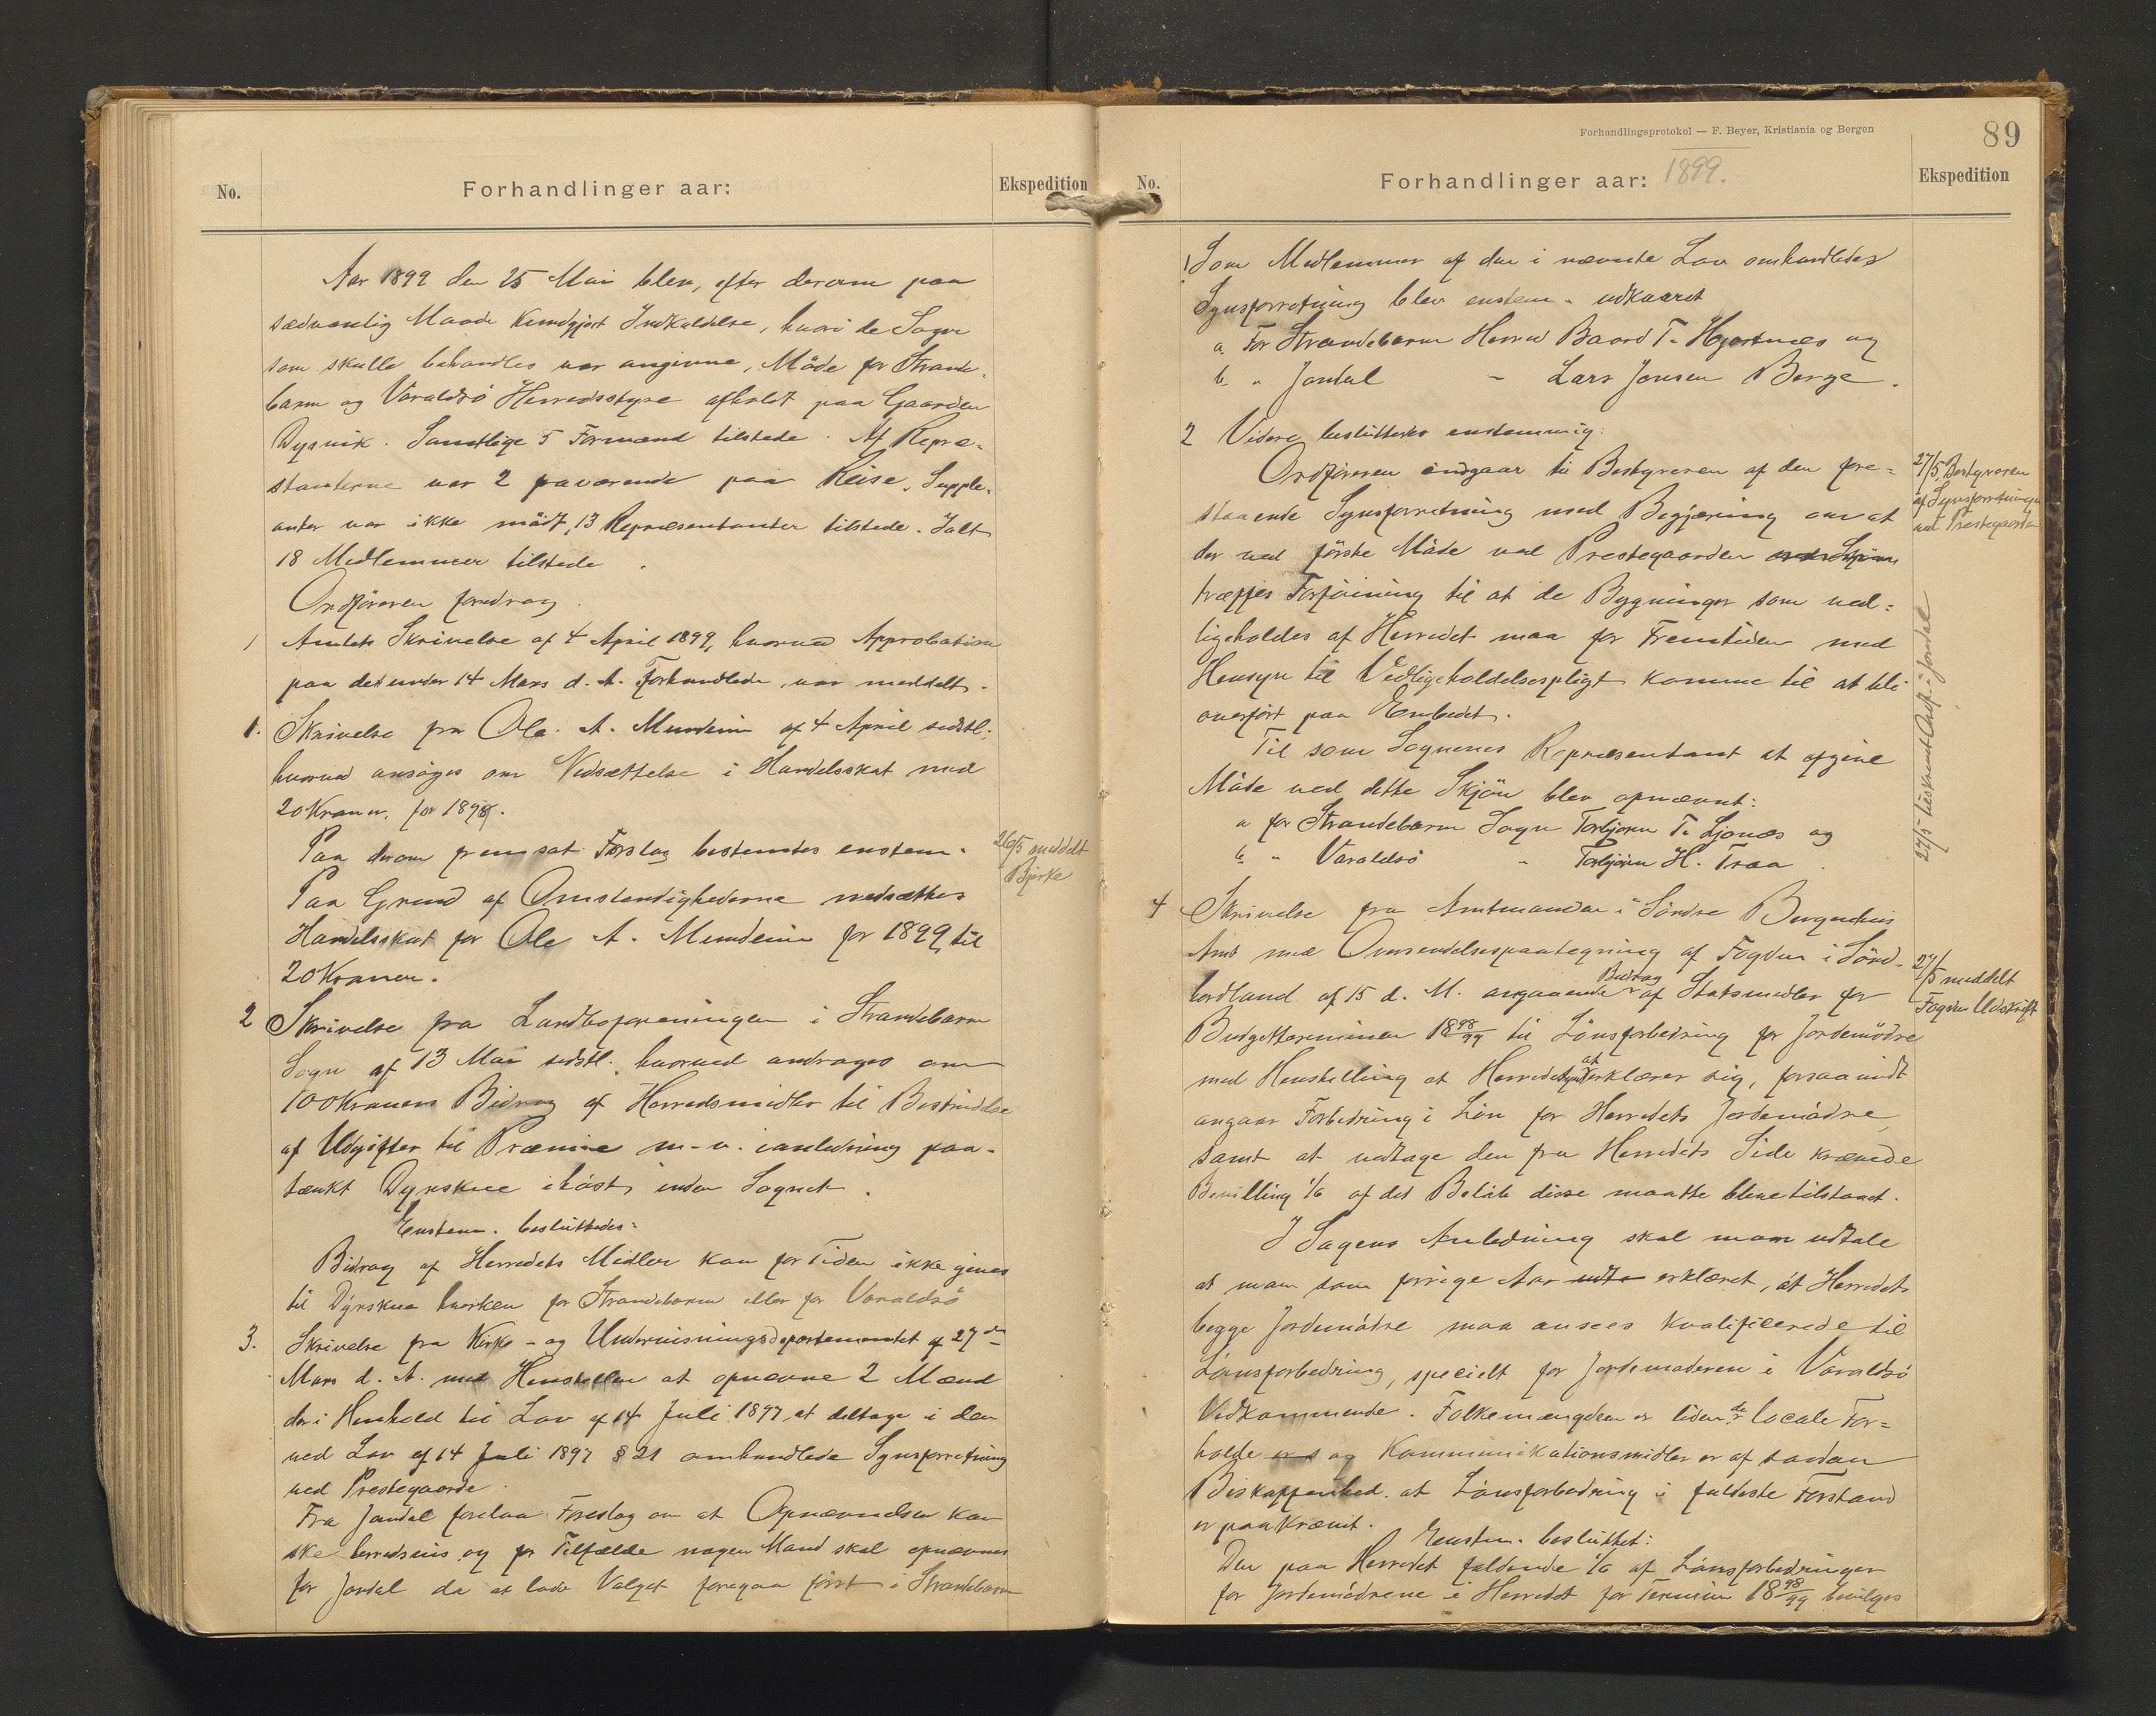 No.
Forhandlinger aar:
Ekspedition
Aar 1899 den 25 Mai blev, efter derom paa
sædvanlig Maade kundgjort Indkaldelse, hvori de Sager
som skulle behandles var angivne, Møde for Strande-
barm og Varaldsø Herredsstyre afholdt paa Gaarden
Dysvik. Samtlige 5 Formænd tilstede. Af Repræ-
stanterne var 2 fraværende paa Reise, Supple-
anter var ikke mødt, 13 Repræsentanter tilstede. Ialt
18 Medlemmer tilstede.
Ordføreren foredrog
1 Amtets Skrivelse af 4 April 1899, hvorved Approbation
paa det under 14 Mars d. A. Forhandlede var meddelt.
1. Skrivelse fra Ole A. Mundheim af 4 April sidstl.
hvorved ansøges om Nedsættelse i Handelsskat med
20 Kroner for 1898.
Paa derom fremsat Forslag bestemtes enstem.
Paa Grund af Omstendighederne nedsættes
Handelsskat for Ole A. Mundeim for 1899 til
20 Kroner.
26/5 meddelt
Bjørke
2 Skrivelse fra Landboforeningen i Strandebarm
Sogn af 13 Mai sidstl. hvorved andrages om
100 Kroners Bidrag af Herredsmidler til Bestridelse
af Udgifter til Præmie m.v. i anledning paa-
tænkt Dyrskue ihøst inden Sognet.
Enstem. besluttedes:
Bidrag af Herredets Midler kan for Tiden ikke gives
til Dyrskue hverken for Strandebarm eller for Varaldsø
3. Skrivelse fra Kirke- og Undervisningsdepartementet af 27de
Mars d. A. med Henstillen at opnævne 2 Mænd
der i Henhold til Lov af 14 Juli 1897 at deltage i den
ved Lov af 14 Juli 1897 § 21 omhandlede Synsforretning
ved Prestegaarde.
Fra Jondal forelaa Foreslag om at Opnævnelsen kan
ske herredsvis og for Tilfælde nogen Mand skal opnævnes
for Jondal da at lade Valget foregaa først i Strandebarm
Forhandlingsprotokol — F. Beyer, Kristiania og Bergen
89
No.
Forhandlinger aar: 1899.
Ekspedition
1 Som Medlemmer af den i nævnte Lov omhandledes
Synsforretning blev enstem. udkaaret
a. For Strandebarm Herred Baard T. Hagestnæs og
b. " Jondal - Lars Jonsen Berge.
2 Videre besluttedes enstemmig:
Ordføreren indgaar til Bestyreren af den fore-
staaende Synsforretning med Begjæring om at
der ved første Møde ved Prestegaarden
træffes Forføining til at de Bygninger som ved-
ligeholdes af Herredet maa for Fremtiden med
Hensyn til Vedligeholdelsespligt komme til at bli
overført paa Embedet.
27/5 Bestyreren
af Synsforretningen
ved Prestegaarden
27/5 tilskrevet Ordf. i Jondal
Til som Sognenes Repræsentant at afgive
Møde ved dette Skjøn blev opnævnt:
a for Strandebarm Sogn Torbjørn T. Ljonæs og
b " Varaldsø - Torbjørn H. Traa.
4 Skrivelse fra Amtmanden i Søndre Bergenhus
Amt med Omsendelsespaategning af Fogden i Sønd-
hordland af 15 d. M. angaaende Bidrag af Statsmidler for
Budgetterminen 1898/99 til Lønsforbedring for Jordemødre
med Henstilling at Herredstyret erklærer sig, forsaavidt
angaar Forbedring i Løn for Herredets Jordemødre,
samt at vedtage den fra Herredets Side krævede
Bevilling 1/6 af det Beløb disse maatte blive tilstaaet.
27/5 meddelt
Fogden Udskrift
I Sagens Anledning skal man udtale
at man som forrige Aar udta erklæret, at Herredets
begge Jordemødre maa ansees kvalificerede til
Lønsforbedring, specielt for Jordemoderen i Varaldsø
Vedkommende. Folkemængden er liden de locale For-
holde er s og Kommunikationsmidler er af saadan
Beskaffenhed, at Lønsforbedring i fuldeste Forstand
er paakrævet.
Enstem. besluttet:
Den paa Herredet faldende 1/6 af Lønsforbedringen
for Jordemødrene i Herredet for Terminen 1898/99 bevilges